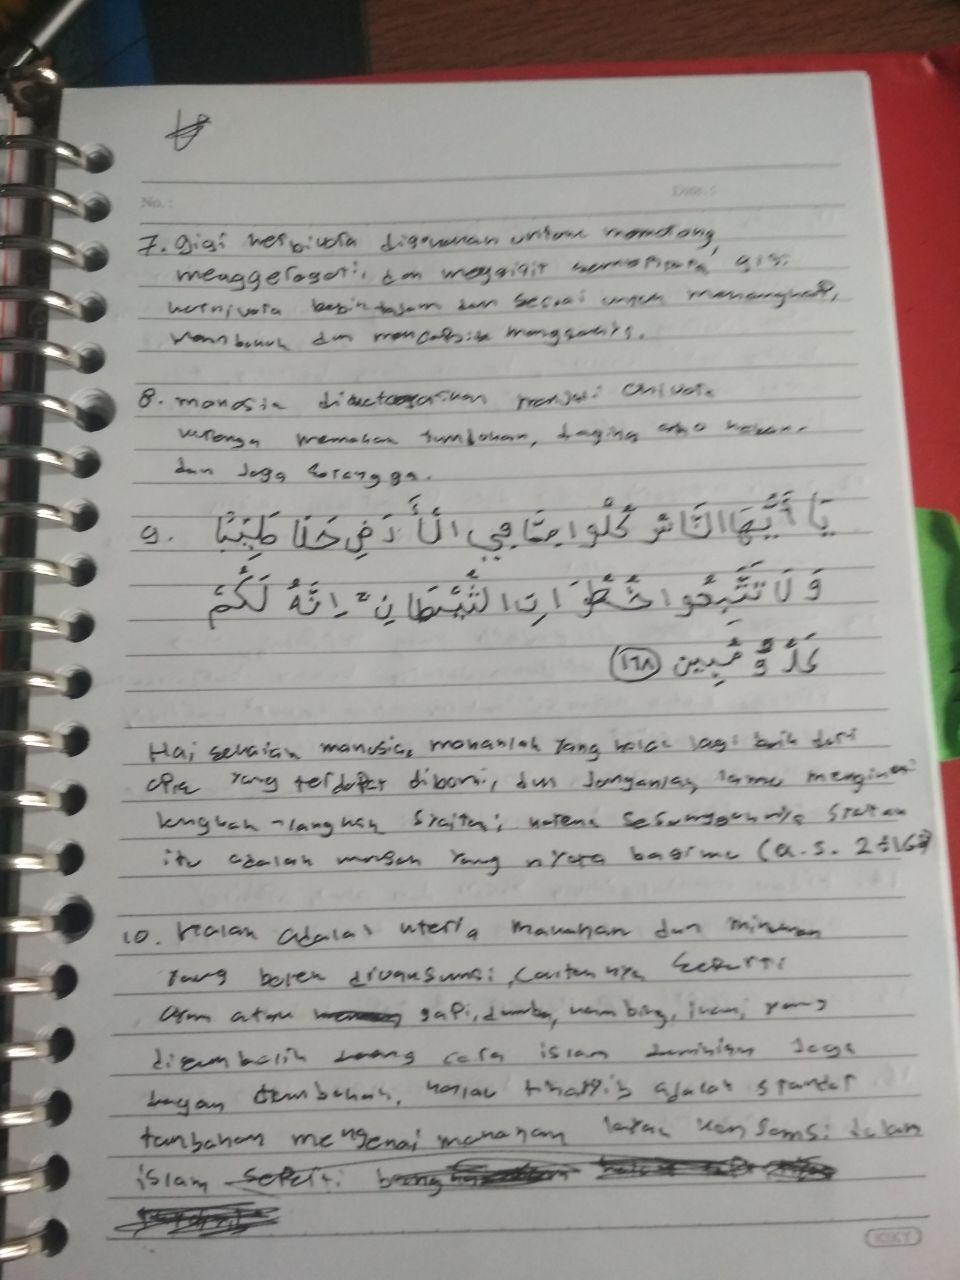 No.:
Date.:
7. gigi herbivora digunakan untuk memotong,
menggerogoti, dan menggigit gigi
lebih tajam dan sesuai untuk
membunuh dan mangsanya.
8. manusia dikategorikan menjadi
memakan tumbuhan, daging
dan Juga serangga.
9. يَا أَيُّهَا النَّاسُ كُلُوا مِمَّا فِي الْأَرْضِ حَلَا طَيِّبًا
وَلَا تَتَّبِعُوا خُطُوَاتِ الشَّيْطَانِ ۚ اِنَّهُ لَكُمْ
عَدُوٌّ مُّبِين ١٦٨
Hai sekalian manusia, makanlah yang halal lagi baik dari
apa yang terdapat dibumi, dan Janganlah kamu mengikuti
langkah-langkah syaitan; karena sesungguhnya syaitan
itu adalah musuh yang nyata bagimu (Q.S. 2:168)
10. Halal adalah kriteria makanan dan minuman
yang boleh dikonsumsi, contohnya seperti
ayam atau sapi, domba, kambing, ikan, yang
disembelih cara islam demikian Juga
tumbuhan, thayyib adalah standar
tambahan mengenai makanan layak konsumsi dalam
islam seperti
KIKY